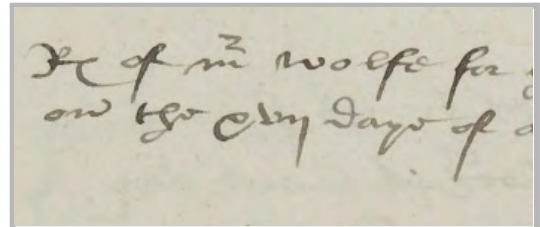 Rc of mr wolfe for
on the xvij daye of